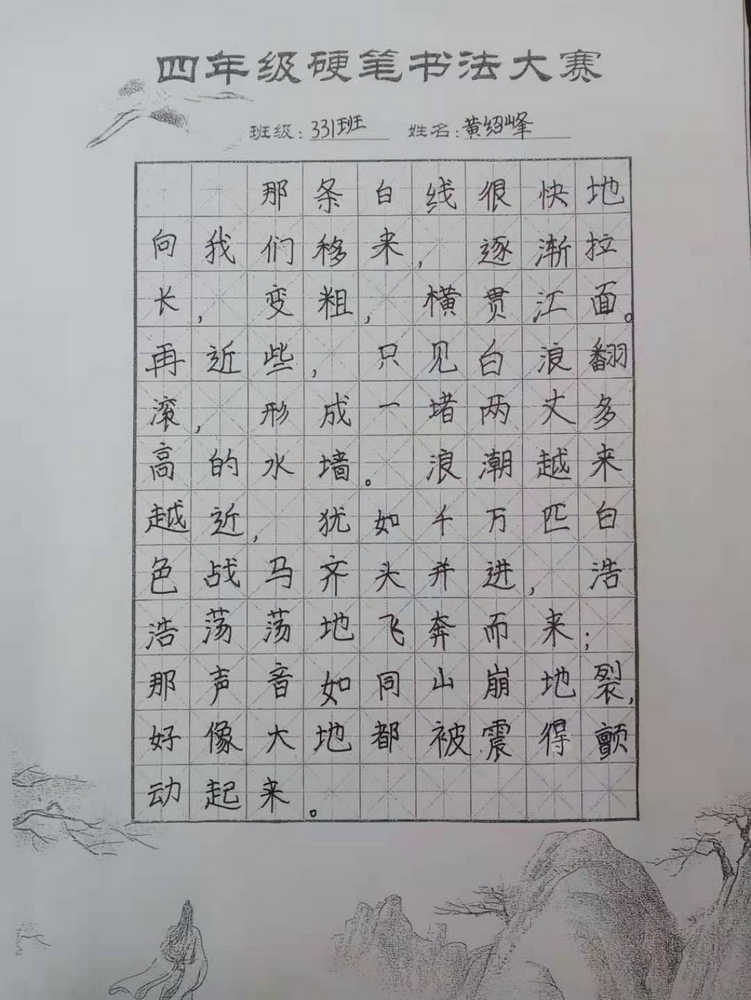 四年级硬笔书法大赛
班级:331班 姓名:黄绍峰
那条白线很快地
向我们移来,逐渐拉
长,变粗,横贯江面。
再近些,只见白浪翻
滚,形成一堵两丈多
高的水墙。浪潮越来
越近,犹如千万匹白
色战马齐头并进,浩
浩荡荡地飞奔而来;
那声音如同山崩地裂,
好像大地都被震得颤
动起来。